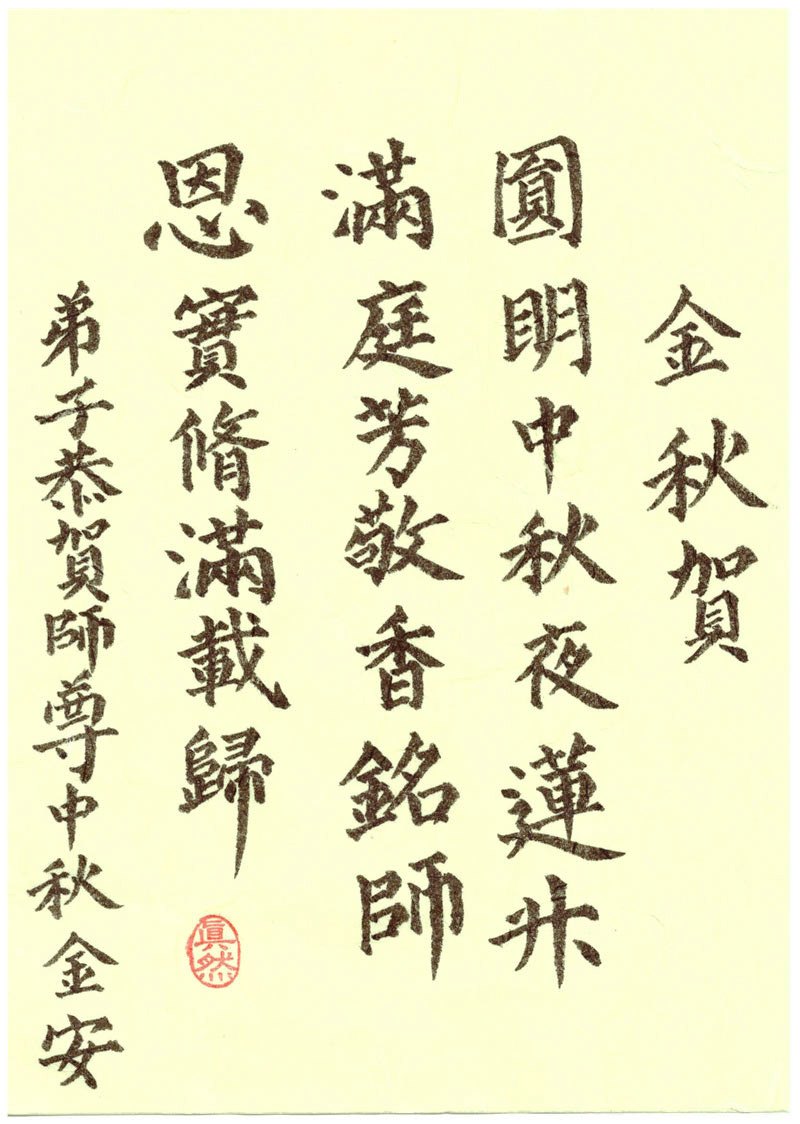 金秋賀
圓明中秋夜蓮升
滿庭芳敬香銘師
恩實脩滿載歸
真然
弟子恭賀師尊中秋金安